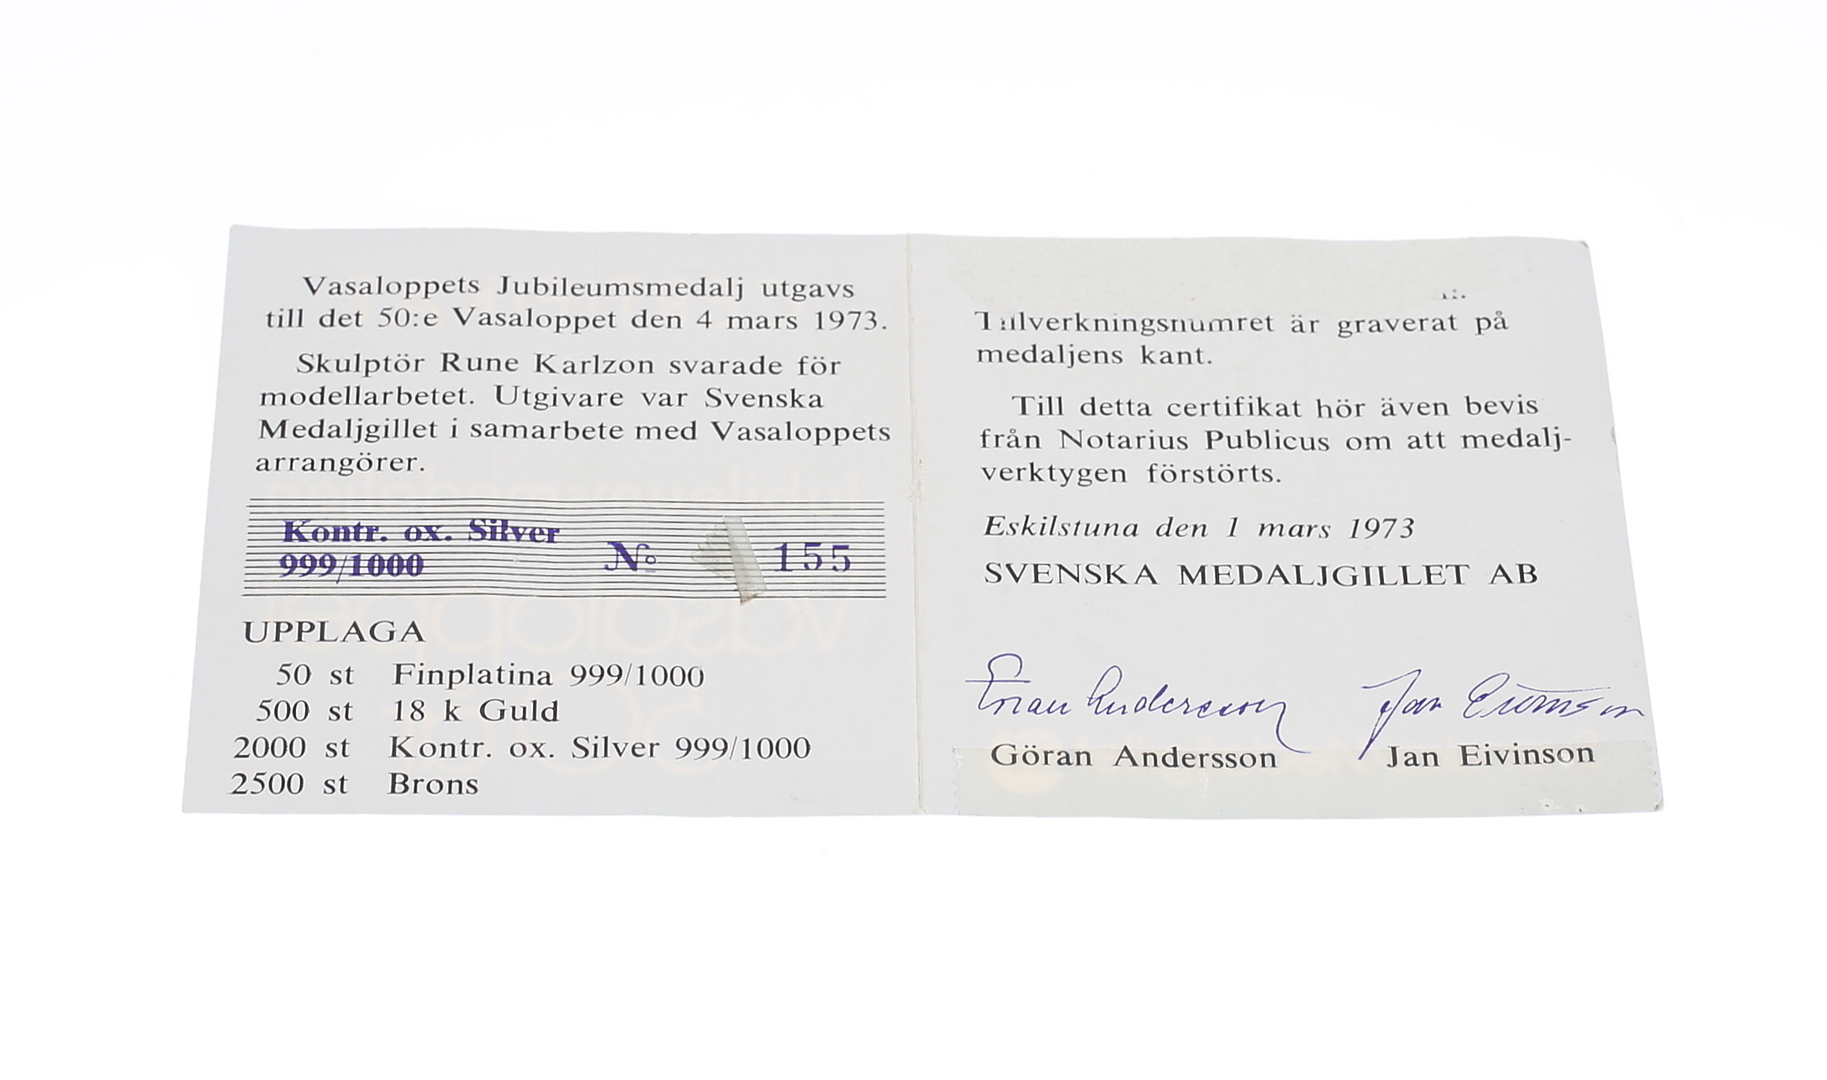 Vasaloppets Jubileumsmedalj utgavs
till det 50:e Vasaloppet den 4 mars 1973.
Skulptör Rune Karlzon svarade för
modellarbetet. Utgivare var Svenska
Medaljgillet i samarbete med Vasaloppets
arrangörer.
Kontr. ox. Silver
999/1000
№ 155
UPPLAGA
50 st Finplatina 999/1000
500 st 18 k Guld
2000 st Kontr. ox. Silver 999/1000
2500 st Brons
Tillverkningsnumret är graverat på
medaljens kant.
Till detta certifikat hör även bevis
från Notarius Publicus om att medalj-
verktygen förstörts.
Eskilstuna den 1 mars 1973
SVENSKA MEDALJGILLET AB
Göran Andersson Jan Eivinson
Göran Andersson Jan Eivinson